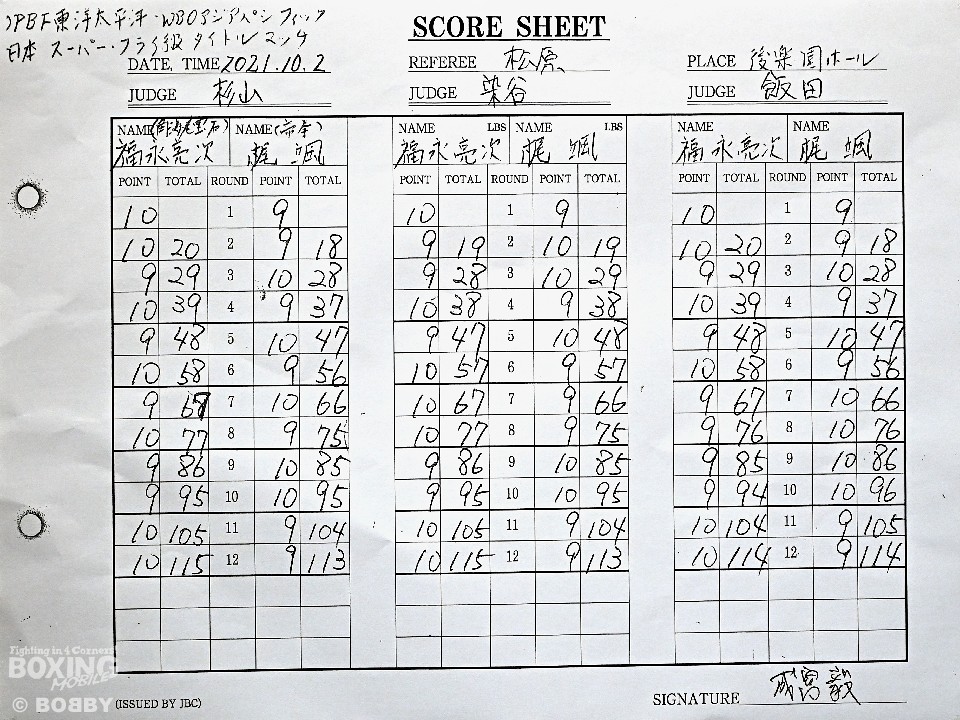 OPBF東洋太平洋・WBOアジアパシフィック
日本 スーパー・フライ級 タイトルマッチ
SCORE SHEET
DATE, TIME 2021.10.2 REFEREE 松原 PLACE 後楽園ホール
JUDGE 杉山 JUDGE 染谷 JUDGE 飯田
NAME NAME(帝拳) NAME LBS NAME LBS NAME NAME
福永亮次 梶 颯 福永亮次 梶 颯 福永亮次 梶 颯
POINT TOTAL ROUND POINT TOTAL POINT TOTAL ROUND POINT TOTAL POINT TOTAL ROUND POINT TOTAL
10 1 9 10 1 9 10 1 9
10 20 2 9 18 9 19 2 10 19 10 20 2 9 18
9 29 3 10 28 9 28 3 10 29 9 29 3 10 28
10 39 4 9 37 10 38 4 9 38 10 39 4 9 37
9 48 5 10 47 9 47 5 10 48 9 48 5 10 47
10 58 6 9 56 10 57 6 9 57 10 58 6 9 56
9 67 7 10 66 10 67 7 9 66 9 67 7 10 66
10 77 8 9 75 10 77 8 9 75 9 76 8 10 76
9 86 9 10 85 9 86 9 10 85 9 85 9 10 86
9 95 10 10 95 9 95 10 10 95 9 94 10 10 96
10 105 11 9 104 10 105 11 9 104 10 104 11 9 105
10 115 12 9 113 10 115 12 9 113 10 114 12 9 114
Fighting in 4 Corners
BOXING
MOBILE
© BOBBY
(ISSUED BY JBC)
SIGNATURE 成富毅